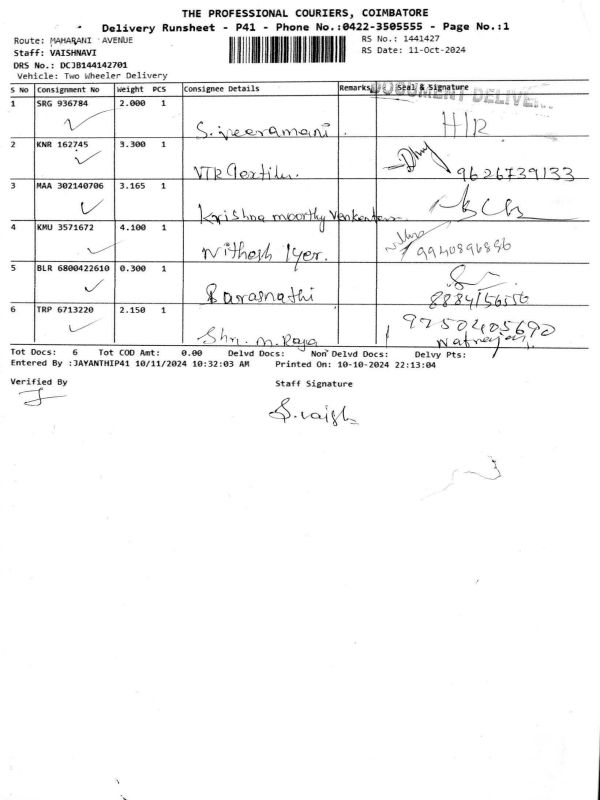 THE PROFESSIONAL COURIERS, COIMBATORE
Delivery Runsheet - P41 - Phone No.:0422-3505555 - Page No.:1
Route: MAHARANI AVENUE
RS No.: 1441427
Staff: VAISHNAVI
RS Date: 11-Oct-2024
DRS No.: DCJB144142701
Vehicle: Two Wheeler Delivery
S No Consignment No Weight PCS Consignee Details Remarks Seal & Signature
DOCUMENT DELIVE
1 SRG 936784 2.000 1
S. veeramani. H/R
2 KNR 162745 3.300 1
VTK 9626739133
3 MAA 302140706 3.165 1
Krishna moorthy
4 KMU 3571672 4.100 1
Nithesh Iyer. 9940896856
5 BLR 6800422610 0.300 1
6 TRP 6713220 2.150 1
Shri. M. Raja
Tot Docs: 6 Tot COD Amt: 0.00 Delvd Docs: Non Delvd Docs: Delvy Pts:
Entered By :JAYANTHIP41 10/11/2024 10:32:03 AM Printed On: 10-10-2024 22:13:04
Verified By Staff Signature
S. vaish